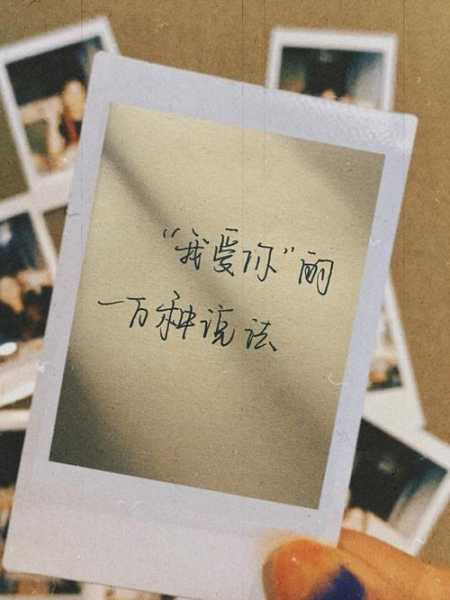 “我爱你”的
一万种说法